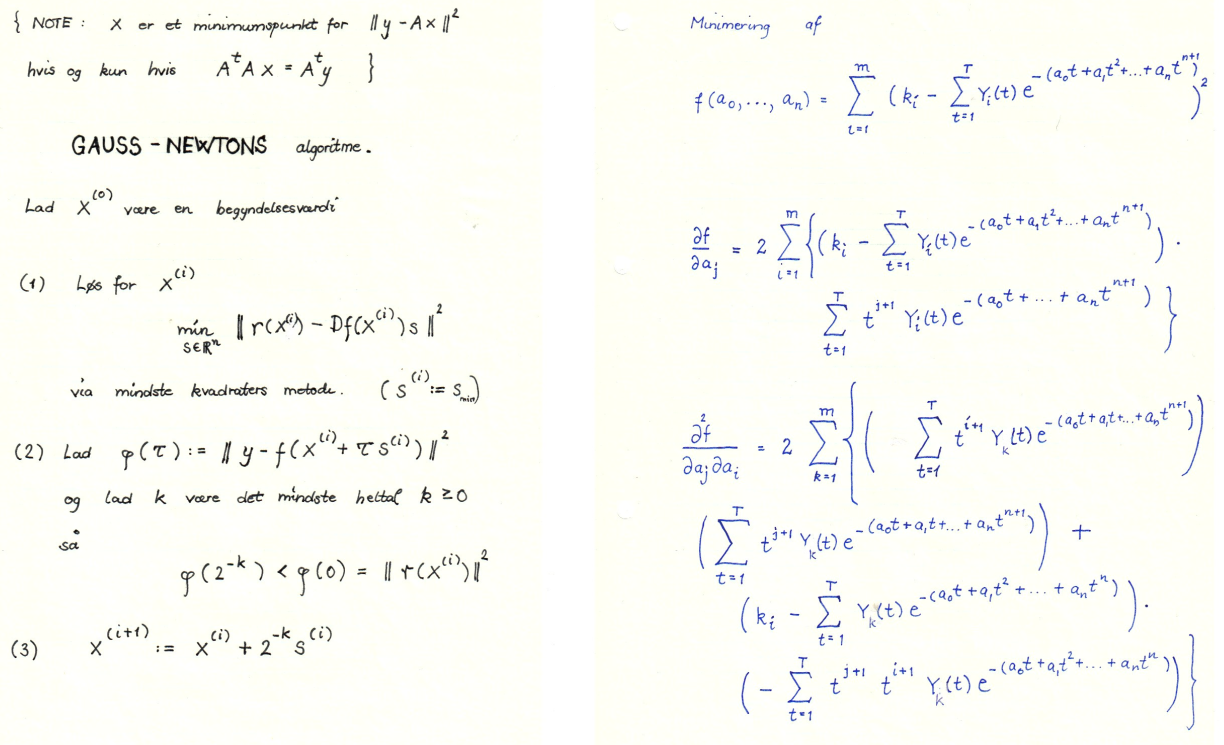 { NOTE : x er et minimumspunkt for ‖y - Ax‖²
hvis og kun hvis AᵗAx = Aᵗy }
GAUSS - NEWTONS algoritme.
Lad x⁽⁰⁾ være en begyndelsesværdi
(1) Løs for x⁽ⁱ⁾
min ‖ r(x⁽ⁱ⁾) - Df(x⁽ⁱ⁾)s ‖²
s∈ℝⁿ
via mindste kvadraters metode. (s⁽ⁱ⁾ := s_min)
(2) Lad φ(τ) := ‖ y - f(x⁽ⁱ⁾ + τs⁽ⁱ⁾) ‖²
og lad k være det mindste heltal k ≥ 0
så
φ(2⁻ᵏ) < φ(0) = ‖ r(x⁽ⁱ⁾) ‖²
(3) x⁽ⁱ⁺¹⁾ := x⁽ⁱ⁾ + 2⁻ᵏ s⁽ⁱ⁾
Minimering af
f(a₀, ..., aₙ) = ∑_{i=1}^{m} (kᵢ - ∑_{t=1}^{T} Yᵢ(t) e^{-(a₀t + a₁t² + ... + aₙt^{n+1})})²
∂f/∂aⱼ = 2 ∑_{i=1}^{m} { (kᵢ - ∑_{t=1}^{T} Yᵢ(t) e^{-(a₀t + a₁t² + ... + aₙt^{n+1})}) ·
∑_{t=1}^{T} t^{j+1} Yᵢ(t) e^{-(a₀t + ... + aₙt^{n+1})} }
∂²f/∂aⱼ∂aᵢ = 2 ∑_{k=1}^{m} { ( ∑_{t=1}^{T} t^{i+1} Yₖ(t) e^{-(a₀t + a₁t + ... + aₙt^{n+1})} )
( ∑_{t=1}^{T} t^{j+1} Yₖ(t) e^{-(a₀t + a₁t + ... + aₙt^{n+1})} ) +
(kᵢ - ∑_{t=1}^{T} Yₖ(t) e^{-(a₀t + a₁t² + ... + aₙtⁿ)}) ·
(- ∑_{t=1}^{T} t^{j+1} t^{i+1} Yₖ(t) e^{-(a₀t + a₁t² + ... + aₙtⁿ)}) }